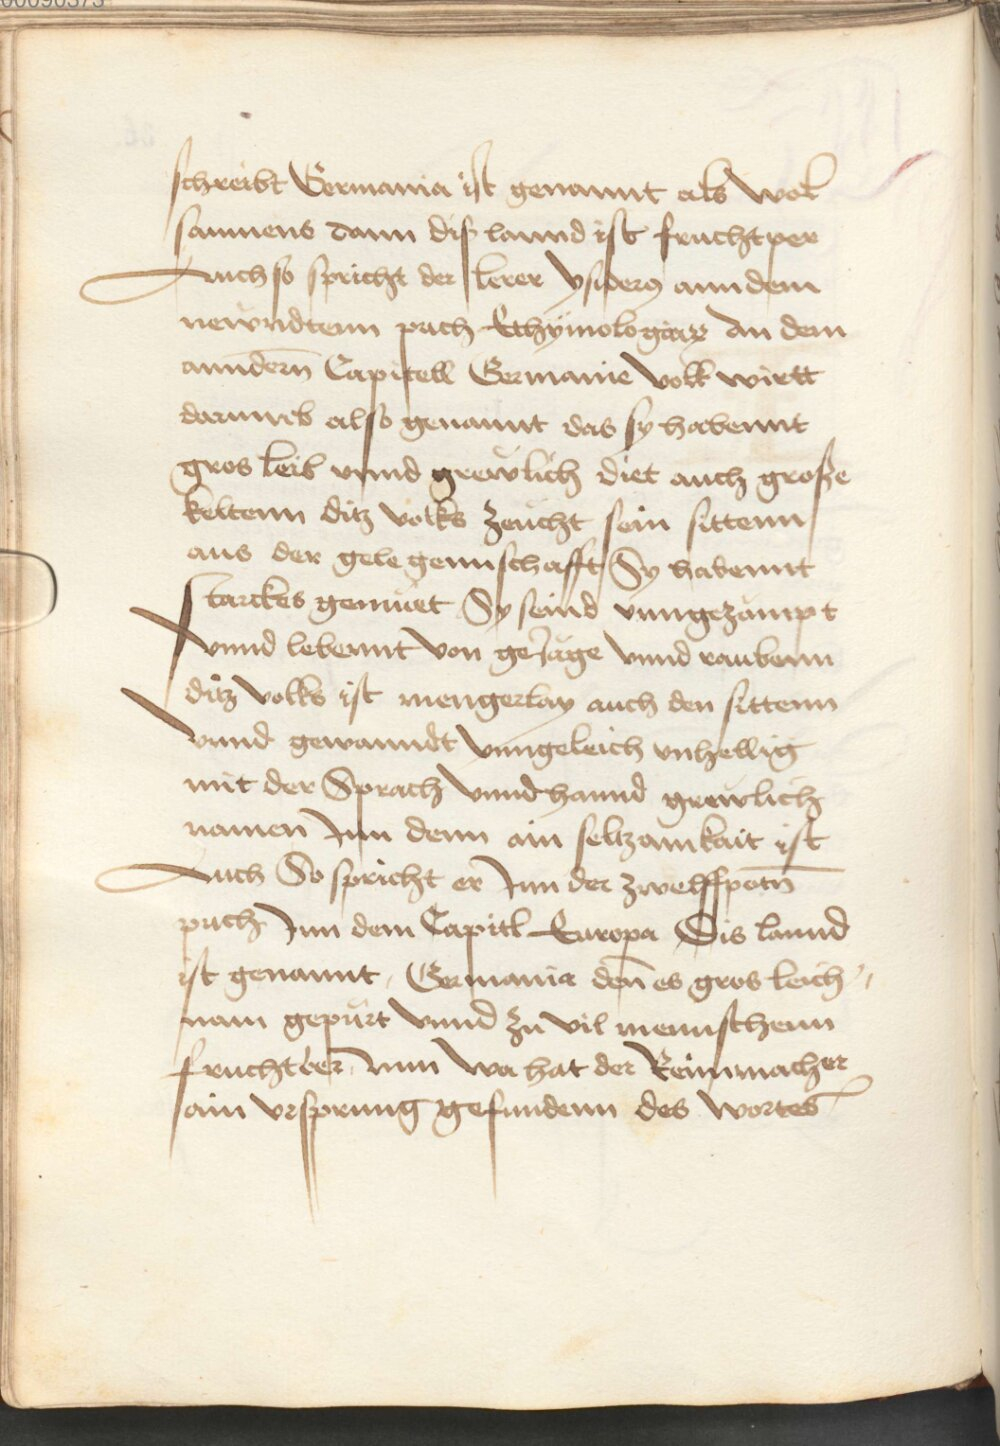 schreibt Germania ist genannt als wol
sammens dann diß lannd ist fruchtper
Auch so spricht der lerer ysiderus anndem
newndtenn puch Ethymologiar An dem
anndern Capitell Germanie volk wirtt
darumb also genannt das sy habennt
gros leib vnnd grewlich diet auch große
keltenn ditz volks zeucht sein sittenn
aus der gelegennschafft Sy habennt
starckes gemuet Sy seind vnngezampt
vnnd lebennt von geJäge vnnd raubenn
ditz volks ist mengerlay auch den sittenn
vnnd gewanndt vnngeleich vnhellig
mit der Sprach vnnd hannd grewlich
namen Jnn denn ain seltzamkait ist
Auch So spricht er Jnn der zwelffpotn
puch Jnn dem Capitl Europa Dis lannd
ist genannt, Germania den es gros leich
nam gepürt vnnd zu vil mennschenn
fruchtber, Nun wa hat der Reimmacher
ain vrsprung gefundenn des wortes